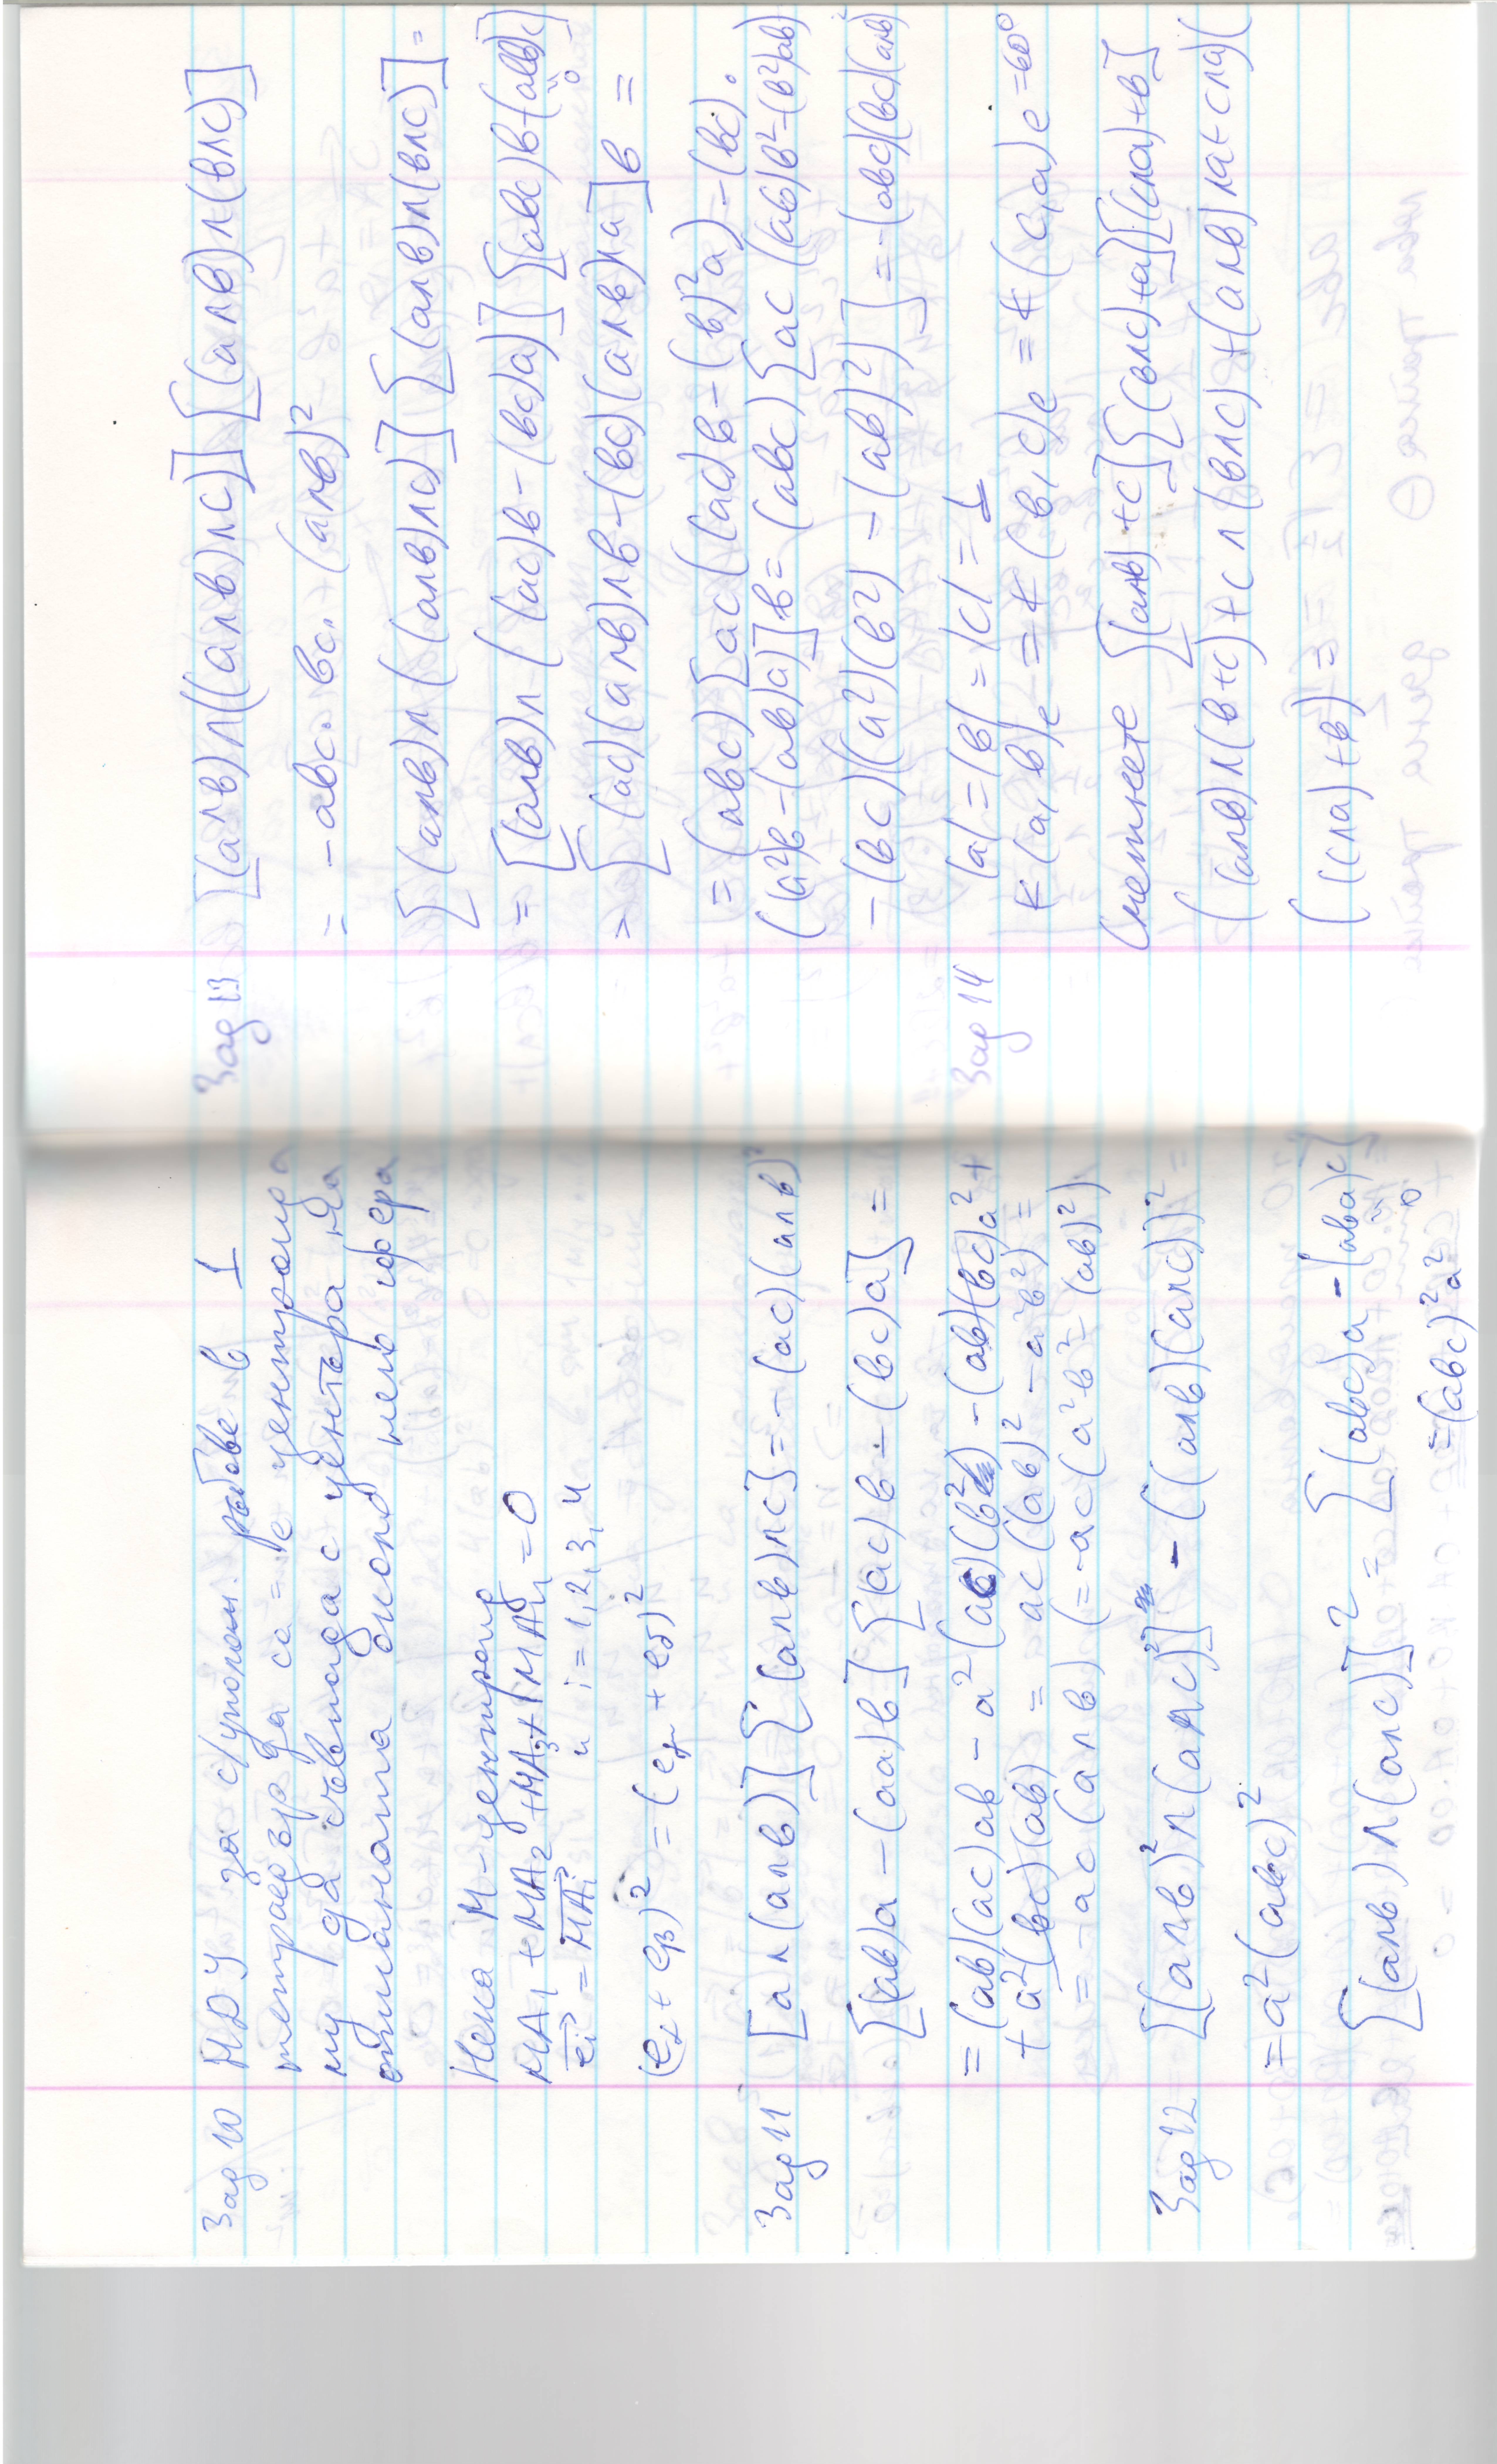 Зад 10 НДУ за с/уполом. ръбове в 1
тетраедър да са = е центроида
му да съвпада с центъра на
описаната около него сфера
Нека M - центроид
MA₁ + MA₂ + MA₃ + MA₄ = 0
eᵢ = MAᵢ и i = 1, 2, 3, 4
(eα + eβ)² = (eγ + eδ)²
Зад 11 [a∧(a∧b)][(a∧b)∧c] = -(ac)(a∧b)²
[(ab)a - (aa)b][(ac)b - (bc)a] =
= (ab)(ac)ab - a²(ac)(b²) - (ab)(bc)a² +
+ a²(bc)(ab) = ac((ab)² - a²b²) =
= -ac(a∧b) (= -ac(a²b² - (ab)²)
Зад 12 [(a∧b)²∧(a∧c)²] - ((a∧b)(a∧c))² =
= a²(abc)²
[(a∧b)∧(a∧c)]² = [(abc)a - (aba)c]
0
= (abc)²a²
Зад 13 [(a∧b)∧((a∧b)∧c)][(a∧b)∧(b∧c)]
= -abc. bc. (a∧b)²
[(a∧b)∧((a∧b)∧c)][(a∧b)∧(b∧c)] =
= [(a∧b)∧((ac)b - (bc)a)][(abc)b + (abb)c]
0
= [(ac)(a∧b)∧b - (bc)(a∧b)∧a]b =
= (abc)[ac((ab)b - (b)²a) - (bc).
((a²)b - (ab)a)]b = (abc)[ac((ab)b² - (b²)ab)
- (bc)((a²)(b²) - (ab)²)] = -(abc)(bc)(a∧b)²
Зад 14 |a| = |b| = |c| = 1
∢(a,b)e = ∢(b,c)e = ∢(c,a)e = 60°
Сметнете [(a∧b)+c][(b∧c)+a][(c∧a)+b]
((a∧b)∧(b∧c) + c∧(b∧c) + (a∧b)∧a + c∧a)(
((c∧a)+b) =